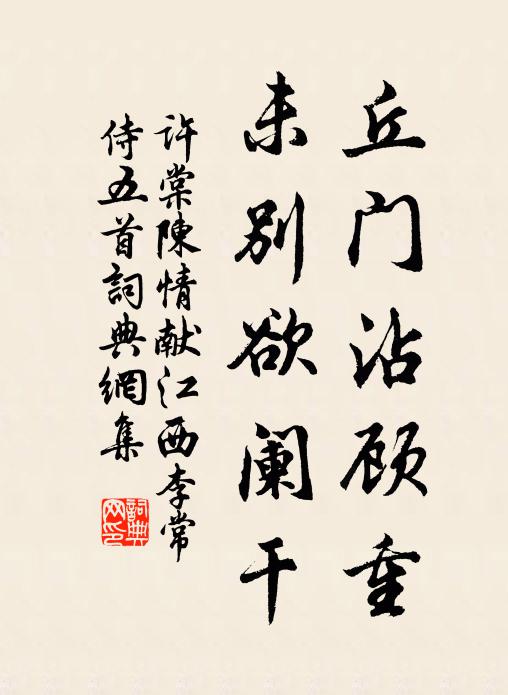 丘门沾顾重
未别欲阑干
许棠陳情献江西李常
侍五首詞典網集
詞典
网印